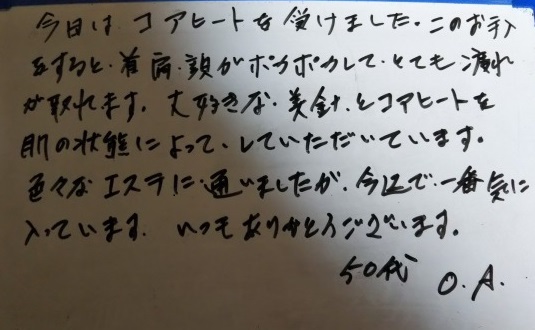 今日は コアヒートを受けました。このお手入
をすると、首、肩、頭がポカポカして、とても 疲れ
が取れます。大好きな、美針、とコアヒートを
肌の状態によって、していただいています。
色々なエステに、通いましたが、今迄で、一番気に
入っています いつもありがとうございます。
50代 O.A.